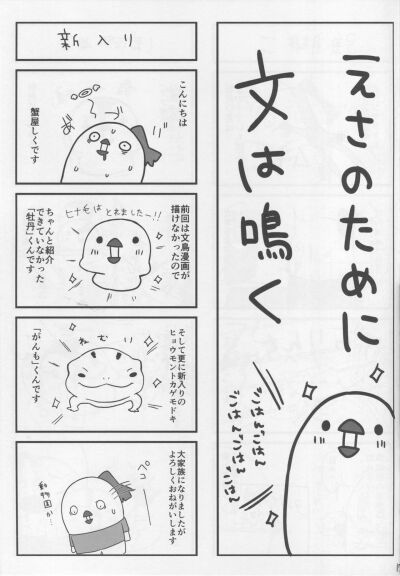 えさのために
文は鳴く
ごはんごはん
ごはんごはんごはん
新入り
こんにちは
蟹屋しくです
前回は文鳥漫画が
描けなかったので
ヒナモはとれましたー!!
ちゃんと紹介
できていなかった
「牡丹」くんです
そして更に新入りの
ヒョウモントカゲモドキ
ねむり
「がんも」くんです
大家族になりましたが
よろしくおねがいします
ペコ
動物園か…